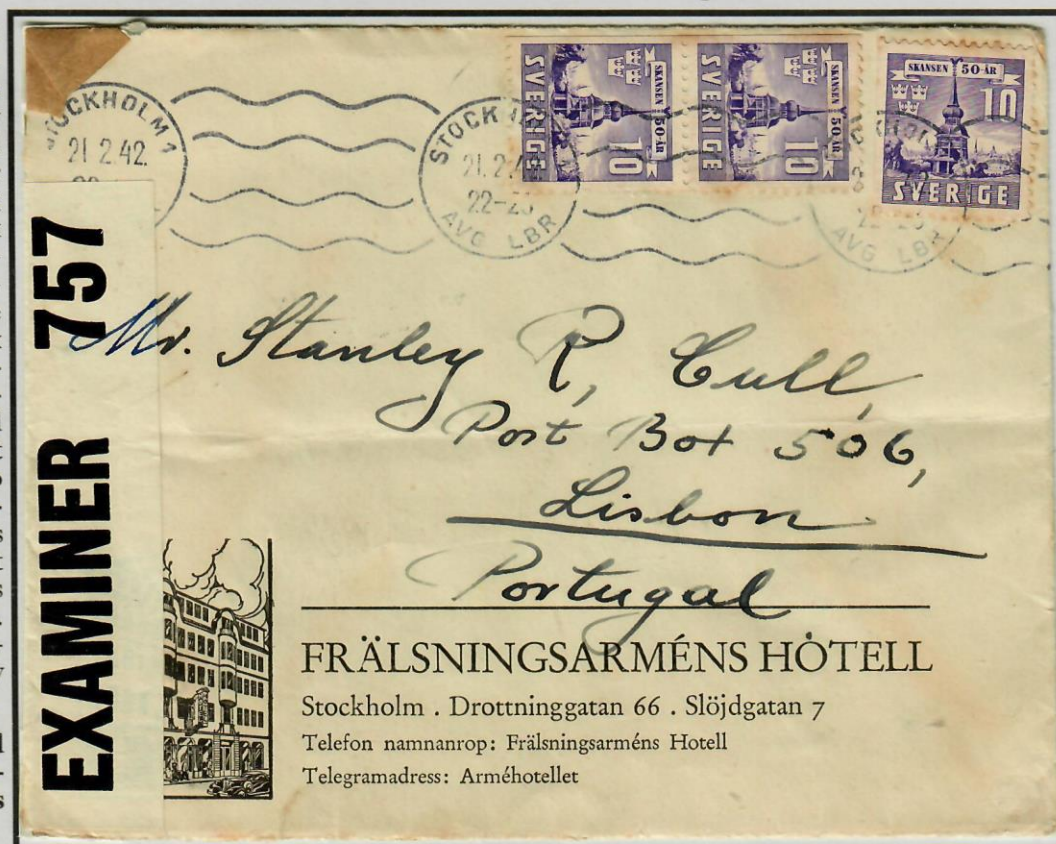 STOCKHOLM 1
21.2.42.
STOCK
21.2.4
22-23
AVG LBR
SKANSEN 50 ÅR
10
SVERIGE
SKANSEN 50 ÅR
10
SVERIGE
SKANSEN 50 ÅR
10
SVERIGE
AVG LBR
EXAMINER 757
Mr. Stanley R, Cull,
Post Box 506,
Lisbon
Portugal
FRÄLSNINGSARMÉNS HOTELL
Stockholm . Drottninggatan 66 . Slöjdgatan 7
Telefon namnanrop: Frälsningsarméns Hotell
Telegramadress: Arméhotellet